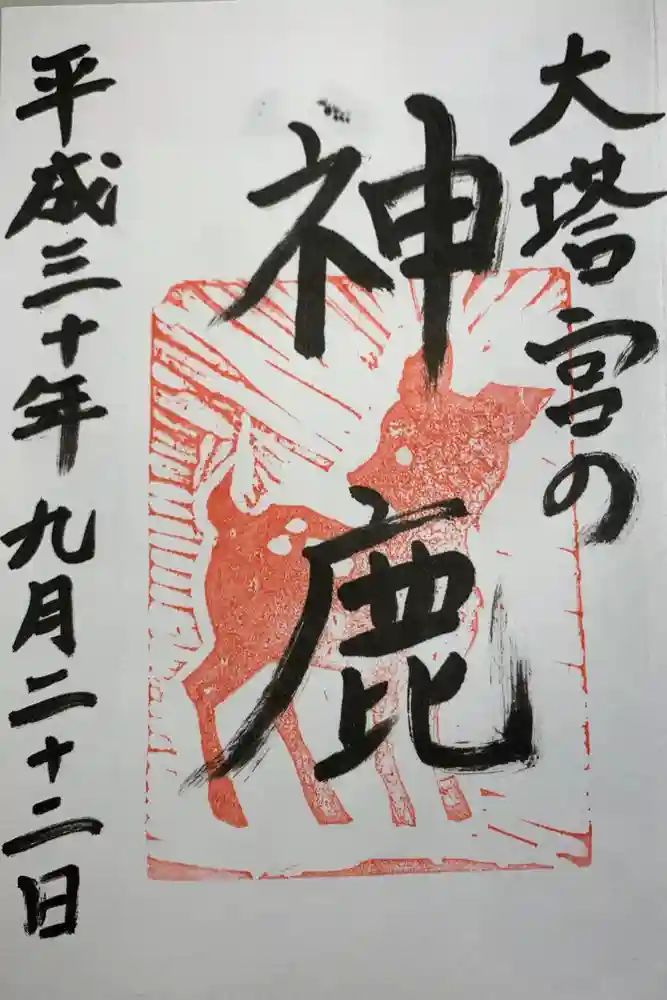 大塔宮の
神鹿
平成三十年九月二十二日